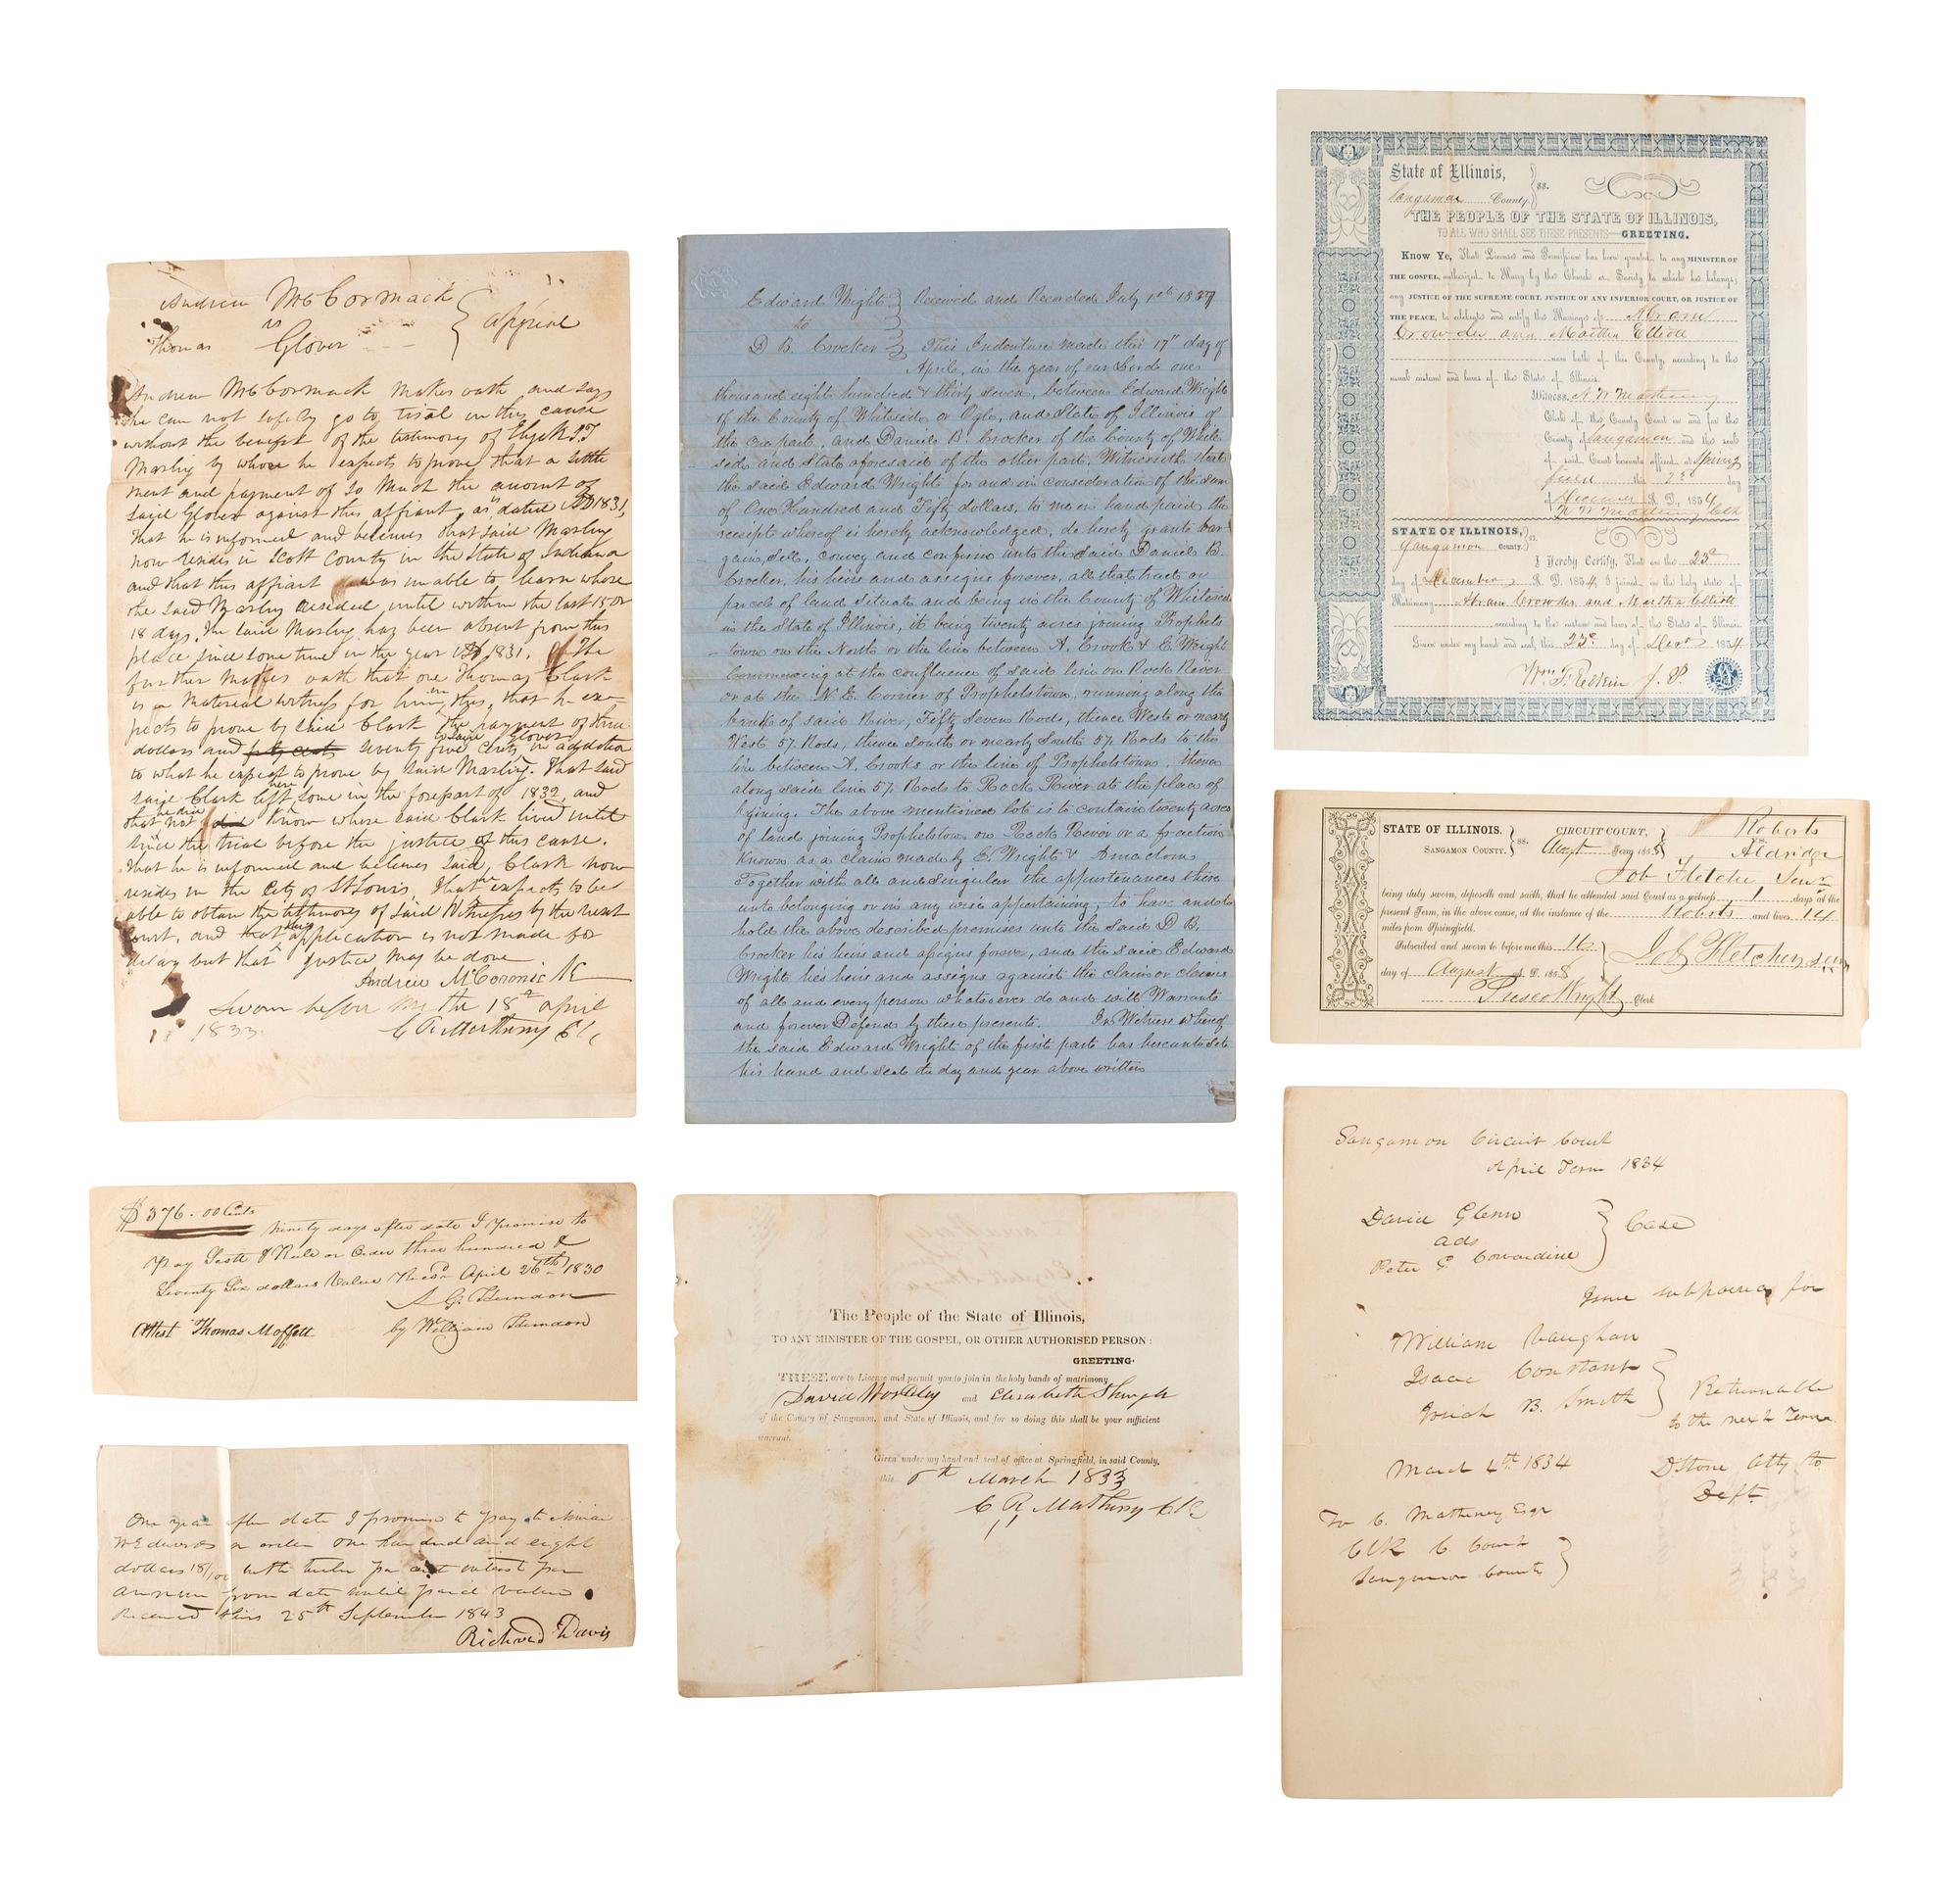 Andrew McCormack
vs
Thomas Glover
appeal
Andrew McCormack makes oath and says
he can not safely go to trial in this cause
without the benefit of the testimony of
by whom he expects to prove that a settle
ment and payment of so much the amount of
said Glover against this affiant, as dated AD 1831,
that he is informed and believes that said
now resides in Scott County in the State of Indiana
and that this affiant was unable to learn where
the said resided, until within the last 15 or
18 days, The said has been absent from this
place since some time in the year AD 1831. He
further makes oath that one Thomas Clark
is a material witness for him in this, that he ex-
pects to prove by said Clark the payment of three
dollars and seventy five Cents to said Glover in addition
to what he expects to prove by said That said
said Clark left here some in the forepart of 1832, and
that he did not know where said Clark lived until
since the trial before the justice of this cause.
that he is informed and believes said Clark now
resides in the City of St Louis, That he expects to be
able to obtain the testimony of said Witnesses by the next
Court, and that this application is not made for
delay but that Justice may be done
Andrew McCormack
Sworn before me the 18th april
1833.
C R Matheny Clk
$376.00 Cents
Ninety days after date I promise to
pay Scott & Rule or Order three hundred &
Seventy Six dollars Value Recd April 26th 1830
A G Herndon
Attest Thomas Moffett by William Herndon
One year after date I promise to pay to
W Edwards or order one hundred and eight
dollars 18/100 with twelve per cent interest per
annum from date until paid value
Received this 25th September 1843
Richard Davis
Edward Wright
to
D B. Crocker
Received and Recorded July 1837
This Indenture made this 17" day of
April, in the year of our Lord one
thousand eight hundred & thirty seven, between Edward Wright
of the County of Whiteside or Ogle, and State of Illinois of
the one part, and Daniel B. Crocker of the County of White
side and State aforesaid of the other part, Witnesseth that
the said Edward Wright for and in consideration of the sum
of One Hundred and Fifty dollars, to me in hand paid the
receipt whereof is hereby acknowledged, do hereby grant bar
gain, sell, convey and confirm unto the said Daniel B.
Crocker, his heirs and assigns forever, all that tract or
parcel of land situate and being in the County of Whiteside
in the State of Illinois, it being twenty acres joining Prophets
town on the North or the line between A. Crook & E. Wright
Commencing at the confluence of said line on Rock River
or at the N.E. Corner of Prophetstown, running along the
bank of said River, Fifty Seven Rods, thence West or nearly
West 57. Rods, thence South or nearly South 57. Rods to the
line between A. Crooks or the line of Prophetstown, thence
along said line 57. Rods to Rock River at the place of
begining. The above mentioned lot is to contain twenty acres
of land joining Prophetstown on Rock River or a fraction
known as a claim made by E. Wright &
Together with all and singular the appurtenances there
unto belonging or in any wise appertaining, to have and to
hold the above described premises unto the said D B.
Crocker his heirs and assigns forever, and the said Edward
Wright his heirs and assigns against the claim or claims
of all and every person whatsoever do and will Warrant
and forever Defend by these presents. In Witness whereof
the said Edward Wright of the first part has hereunto set
his hand and seal the day and year above written
The People of the State of Illinois,
TO ANY MINISTER OF THE GOSPEL, OR OTHER AUTHORISED PERSON:
GREETING.
THESE are to License and permit you to join in the holy bands of matrimony
David and Elizabeth
of the County of Sangamon, and State of Illinois, and for so doing this shall be your sufficient
warrant.
Given under my hand and seal of office at Springfield, in said County,
this 8th March 1833
C R Matheny Clk
State of Illinois,
Sangamon County. } ss.
THE PEOPLE OF THE STATE OF ILLINOIS,
TO ALL WHO SHALL SEE THESE PRESENTS—GREETING.
Know Ye, That License and Permission has been granted to any MINISTER OF
THE GOSPEL, authorized to Marry by the Church or Society to which he belongs;
any JUSTICE OF THE SUPREME COURT, JUSTICE OF ANY INFERIOR COURT, OR JUSTICE OF
THE PEACE, to celebrate and certify the Marriage of Abram
Crowder and Martha Elliott
now both of this County, according to the
usual custom and laws of the State of Illinois.
Witness, N W Matheny
Clerk of the County Court in and for the
County of Sangamon and the seal
of said Court hereunto affixed at Spring
field this 23d day
of December A. D. 1854
N W Matheny Clk
STATE OF ILLINOIS,
Sangamon County. } ss.
I Hereby Certify, That on the 23d
day of December A. D. 1854, I joined in the holy state of
Matrimony Abram Crowder and Martha Elliott
according to the custom and laws of this State of Illinois.
Given under my hand and seal, this 23d day of Decr 1854.
Wm F. Elkin J. P.
STATE OF ILLINOIS.
SANGAMON COUNTY. } ss.
CIRCUIT COURT,
Augt Term 1858
Roberts
vs.
Aldridge
Job Fletcher Senr
being duly sworn, deposeth and saith, that he attended said Court as a witness 1 days at the
present Term, in the above cause, at the instance of the Roberts and lives 14
miles from Springfield.
Subscribed and sworn to before me this 16
day of August A. D. 1858
Job Fletcher Senr
Presco Wright Clerk
Sangamon Circuit Court
April Term 1834
David Glenn
ads
Peter G. Cowardine
Case
Issue subpoena for
William Vaughan
Isaac Constant
Josiah B. Smith
Returnable
to the next Term
March 4th 1834
D Stone Atty to
Deft
To C. Matheney Esqr
Clk C. Court
Sangamon County